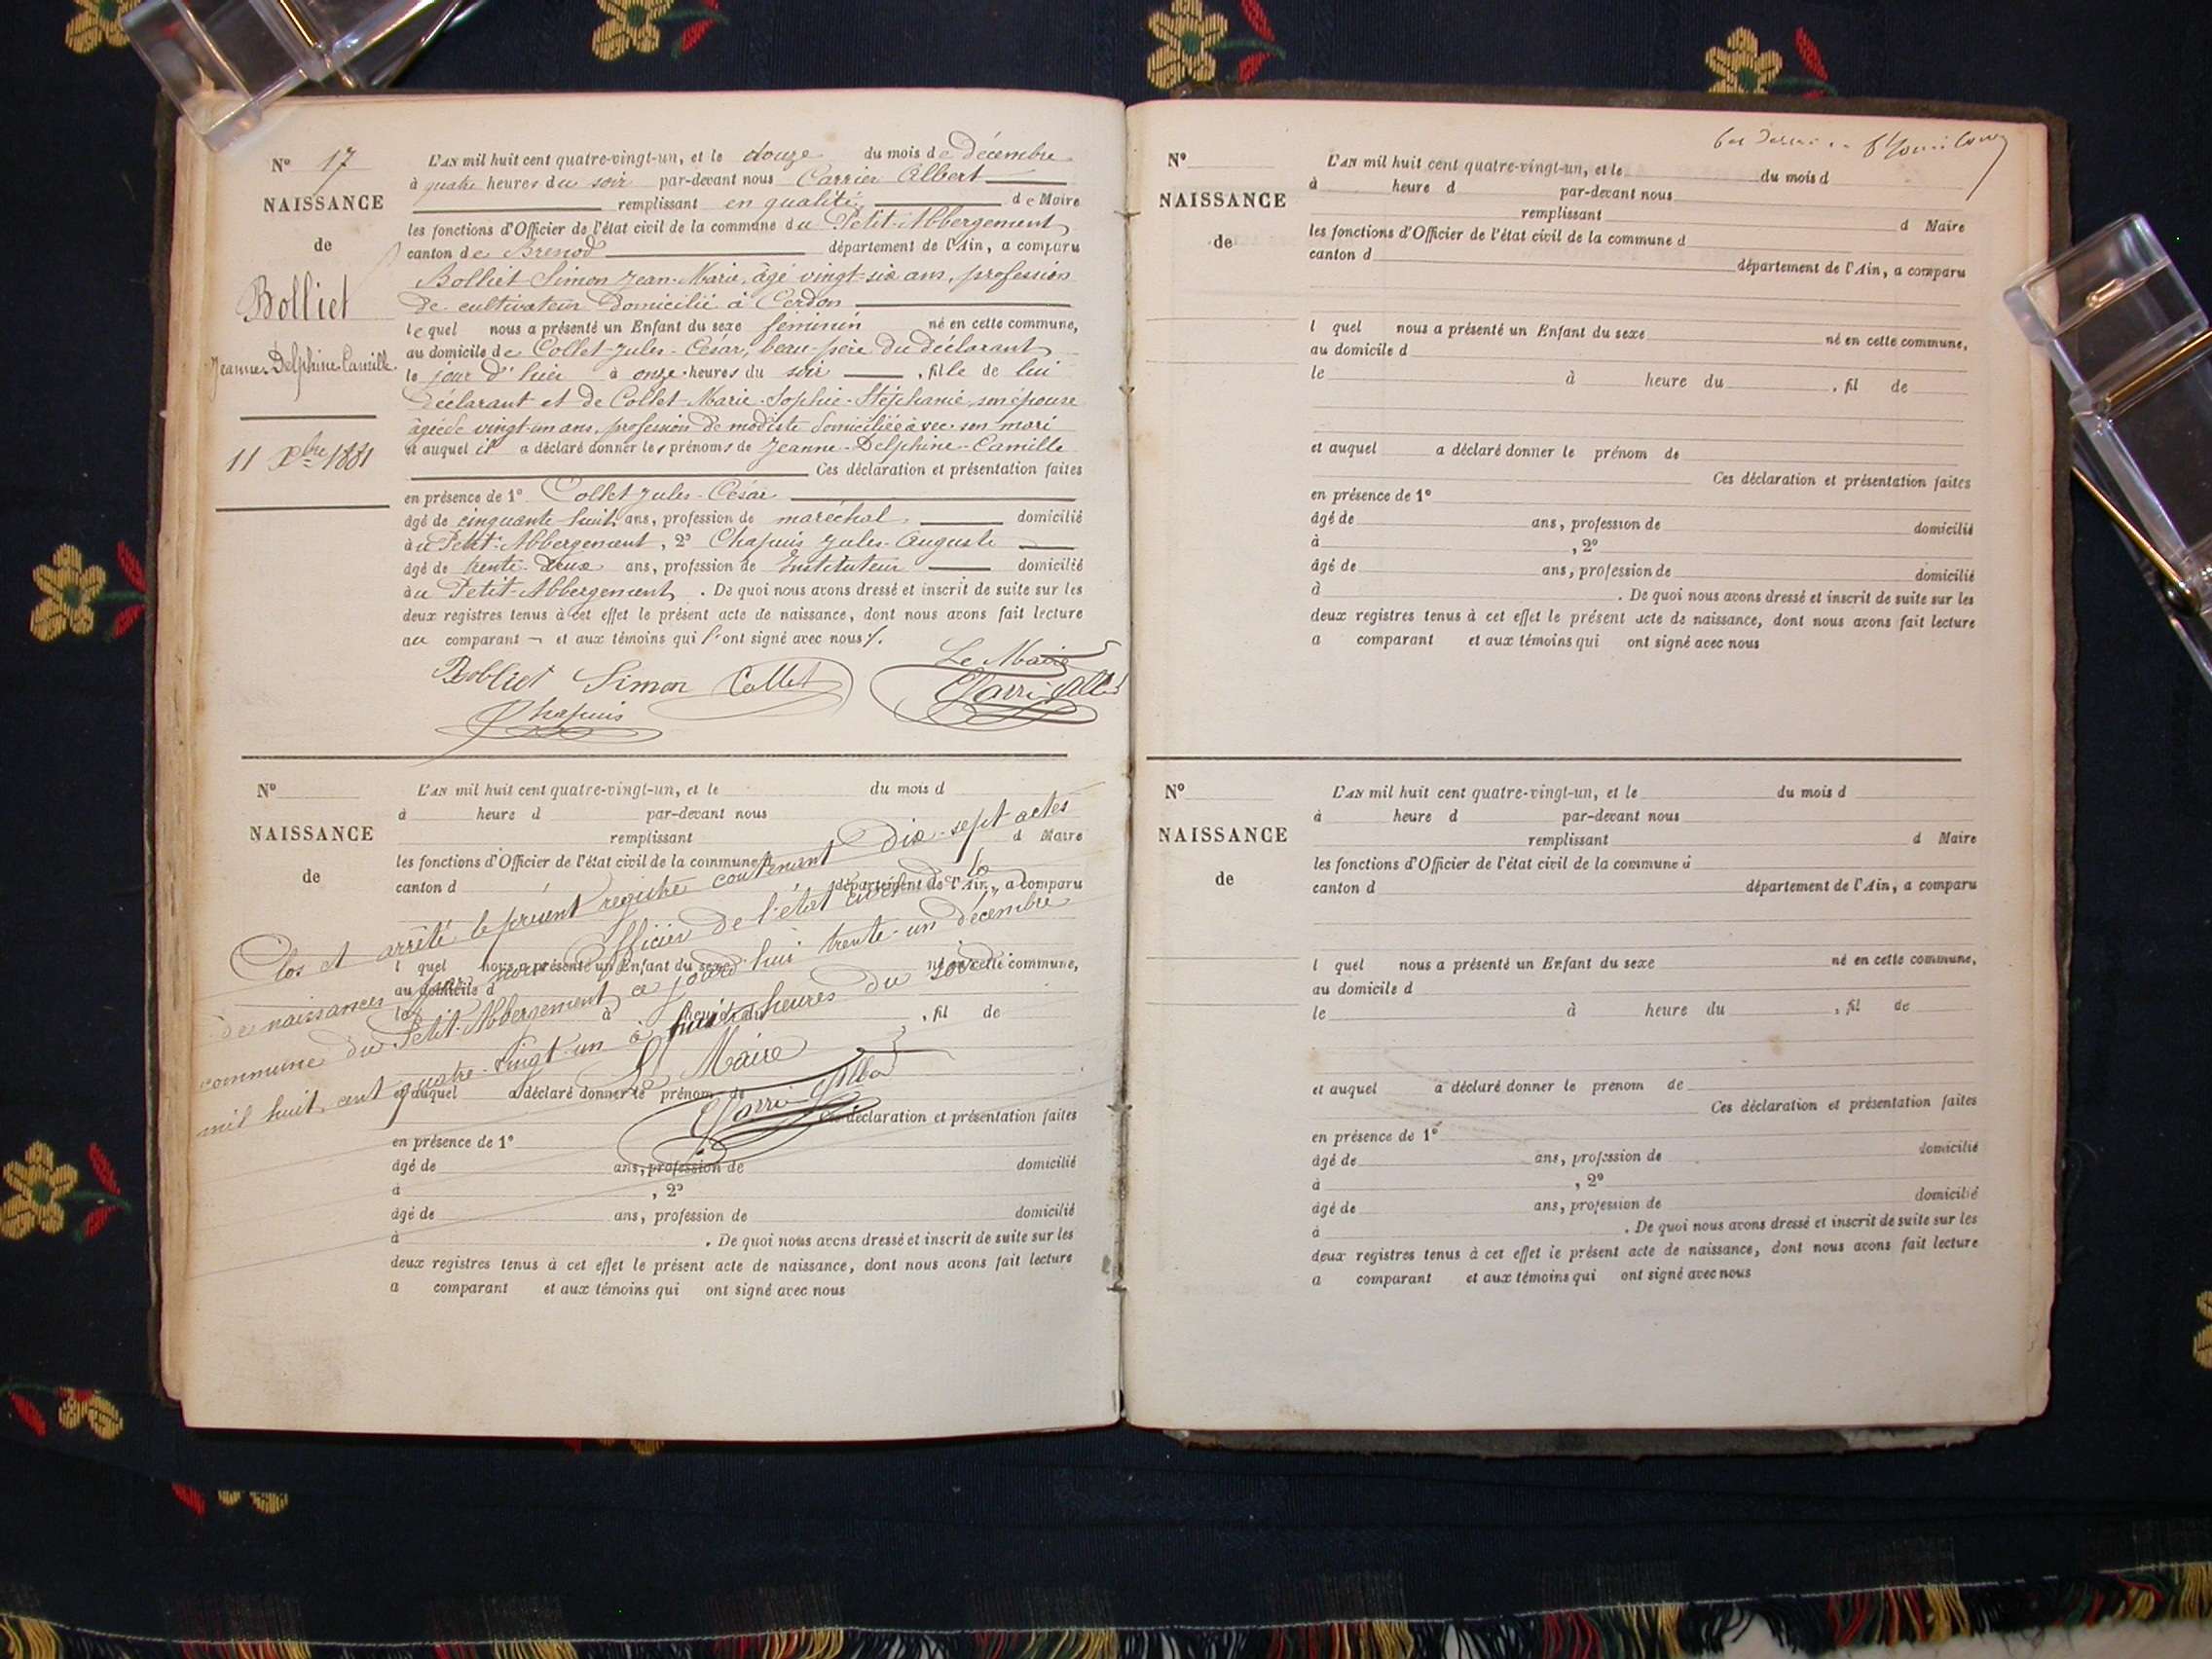 N° 17
NAISSANCE
de
Bolliet
Jeanne-Delphine-Camille
11 Xbre 1881
L'AN mil huit cent quatre-vingt-un, et le douze du mois de décembre
à quatre heures du soir par-devant nous Carrier Albert
remplissant en qualité de Maire
les fonctions d'Officier de l'état civil de la commune du Petit-Abbergement
canton de Brenod département de l'Ain, a comparu
Bolliet Simon Jean-Marie, âgé vingt-six ans, profession
de cultivateur domicilié à Cerdon
lequel nous a présenté un Enfant du sexe féminin né en cette commune,
au domicile de Collet-Jules-César, beau-père du déclarant
le jour d'hier à onze heures du soir, fille de lui
déclarant et de Collet Marie-Sophie-Stéphanie, son épouse
âgée de vingt-un ans, profession de modiste domiciliée avec son mari
et auquel il a déclaré donner les prénoms de Jeanne-Delphine-Camille
Ces déclaration et présentation faites
en présence de 1° Collet Jules-César
âgé de cinquante huit ans, profession de maréchal domicilié
au Petit-Abbergement, 2° Chapuis Jules-Auguste
âgé de trente-deux ans, profession de Instituteur domicilié
au Petit-Abbergement. De quoi nous avons dressé et inscrit de suite sur les
deux registres tenus à cet effet le présent acte de naissance, dont nous avons fait lecture
au comparant et aux témoins qui l'ont signé avec nous
Bolliet Simon Collet
Le Maire
Chapuis
N°
NAISSANCE
de
L'AN mil huit cent quatre-vingt-un, et le du mois d
à heure d par-devant nous
remplissant d Maire
les fonctions d'Officier de l'état civil de la commune d
canton d département de l'Ain, a comparu
l quel nous a présenté un Enfant du sexe né en cette commune,
au domicile d
le à heure du , fil de
et auquel a déclaré donner le prénom de
Ces déclaration et présentation faites
en présence de 1°
âgé de ans, profession de domicilié
à , 2°
âgé de ans, profession de domicilié
à . De quoi nous avons dressé et inscrit de suite sur les
deux registres tenus à cet effet le présent acte de naissance, dont nous avons fait lecture
a comparant et aux témoins qui ont signé avec nous
Clos et arrêté le présent registre contenant dix-sept actes
de naissances par nous Officier de l'état civil de la
commune du Petit-Abbergement ce jourd'hui trente-un décembre
mil huit cent quatre-vingt-un à huit heures du soir
Le Maire
N°
NAISSANCE
de
L'AN mil huit cent quatre-vingt-un, et le du mois d
à heure d par-devant nous
remplissant d Maire
les fonctions d'Officier de l'état civil de la commune d
canton d département de l'Ain, a comparu
l quel nous a présenté un Enfant du sexe né en cette commune,
au domicile d
le à heure du , fil de
et auquel a déclaré donner le prénom de
Ces déclaration et présentation faites
en présence de 1°
âgé de ans, profession de domicilié
à , 2°
âgé de ans, profession de domicilié
à . De quoi nous avons dressé et inscrit de suite sur les
deux registres tenus à cet effet le présent acte de naissance, dont nous avons fait lecture
a comparant et aux témoins qui ont signé avec nous
N°
NAISSANCE
de
L'AN mil huit cent quatre-vingt-un, et le du mois d
à heure d par-devant nous
remplissant d Maire
les fonctions d'Officier de l'état civil de la commune d
canton d département de l'Ain, a comparu
l quel nous a présenté un Enfant du sexe né en cette commune,
au domicile d
le à heure du , fil de
et auquel a déclaré donner le prenom de
Ces déclaration et présentation faites
en présence de 1°
âgé de ans, profession de domicilié
à , 2°
âgé de ans, profession de domicilié
à . De quoi nous avons dressé et inscrit de suite sur les
deux registres tenus à cet effet le présent acte de naissance, dont nous avons fait lecture
a comparant et aux témoins qui ont signé avec nous